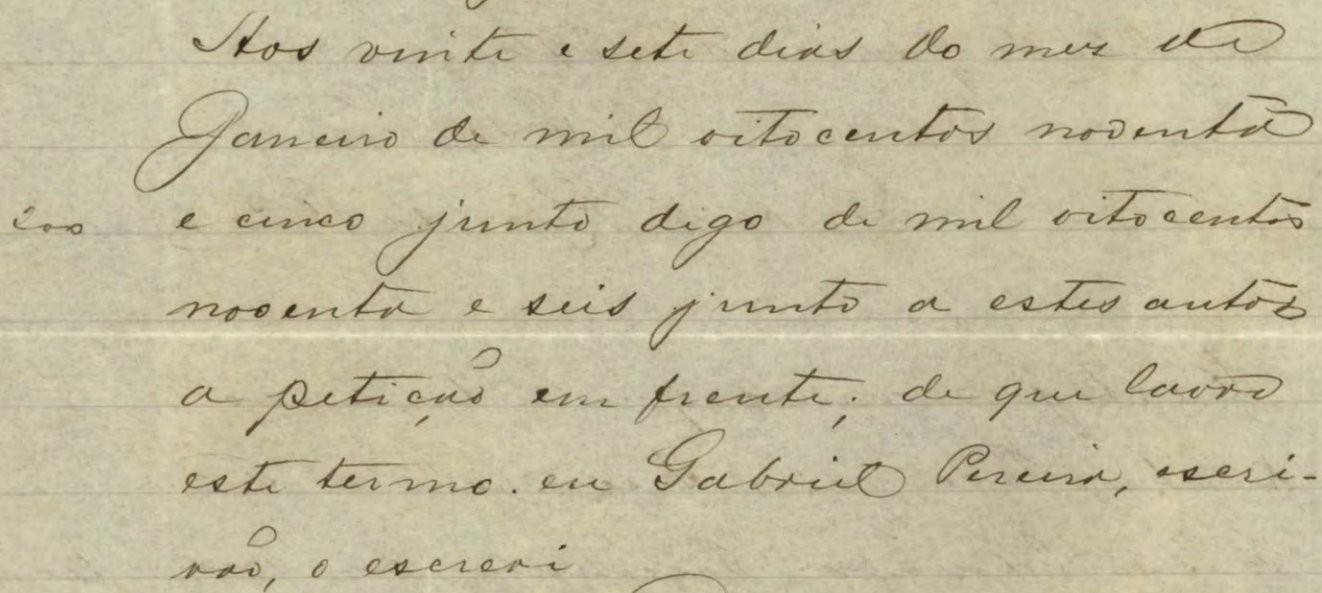 Aos vinte e sete dias do mez de
Janeiro de mil oitocentos noventa
200 e cinco junto digo de mil oitocentos
noventa e seis junto a estes autos
a petição em frente; de que lavro
este termo. eu Gabriel Pereira, escri-
vão, o escrevi